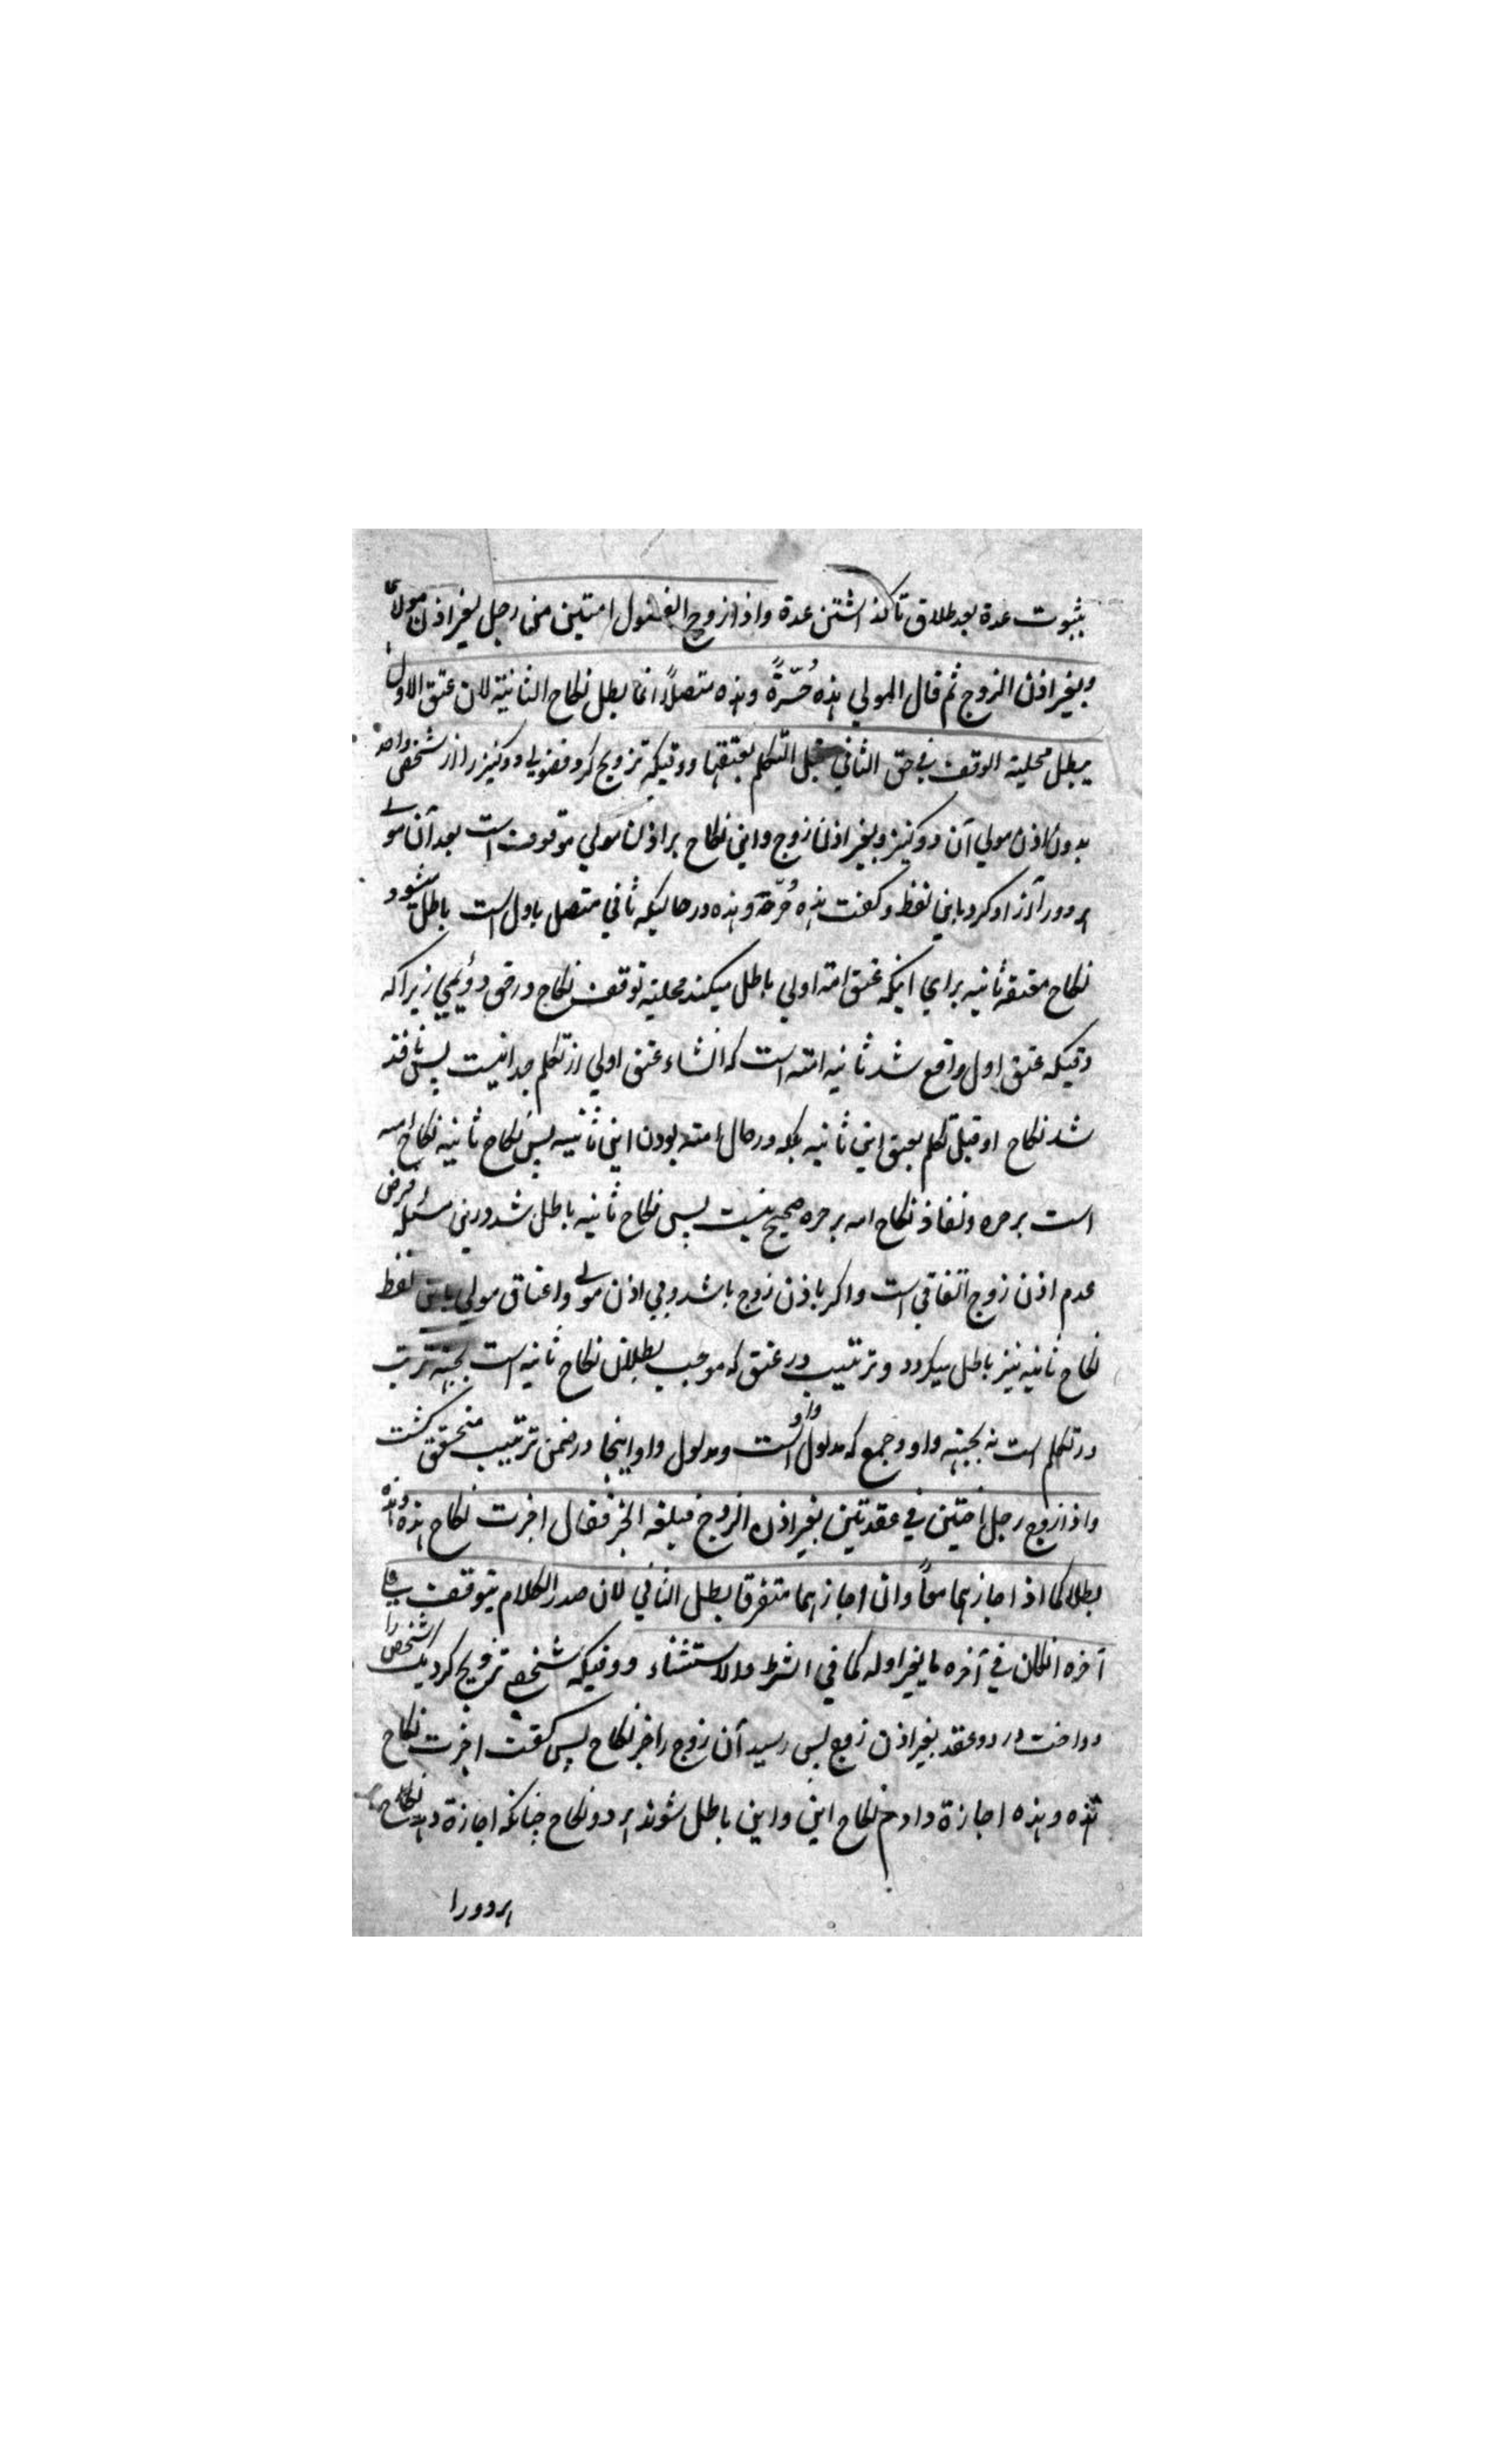 بثبوت عدة بعد طلاق تا گذاشتن عدة واذا زوج الفضول امتین من رجل بغیر اذن مولا
وبغیر اذن الزوج ثم قال المولي هذه حُرّةٌ وهذه متصلاً انما بطل نکاح الثانیة لان عتق الاول
یبطل محلیة الوقف في حق الثاني قبل التکلم بعتقها ووقتیکه تزویج کرد فضولي دو کنیز را از شخصی واحد
بدون اذن مولي آن دو کنیز وبغیر اذن زوج واین نکاح بر اذن مولي موقوفست بعد آن مولے
هر دو را آزاد کرد باین لفظ وگفت هذه حُرّة وهذه در حالیکه ثاني متصل باول است باطل میشود
نکاح معتقه ثانیه براي اینکه عتق امة اولي باطل میکند محلیة توقف نکاح در حق دوئمي زیراکه
وقتیکه عتق اول واقع شد ثانیه امته است که انشاء عتق اولي از تکلم جدا نیست پس نافذ
شد نکاح او قبل تکلم بعتق این ثانیه بلکه در حال امته بودن این ثانیه پس نکاح ثانیه نکاح امه
است بر حره ونفاذ نکاح امه بر حره صحیح نیست پس نکاح ثانیه باطل شد درین مسئله فرض
عدم اذن زوج اتفاقي است واگر باذن زوج باشد وبي اذن مولے واعتاق مولي باین لفظ
نکاح ثانیه نیز باطل میگردد وترتیب در عتق که موجب بطلان نکاح ثانیه است بجهته ترتیب
در تکلم است نه بجهته واو وجمع که مدلول واو است ومدلول واو اینجا در ضمن ترتیب متحقق گشت
واذا زوج رجل اختین في عقدتین بغیر اذن الزوج فبلغه الخبر فقال اجزت نکاح هذه وهذه
بطلا کما اذا اجازهما معاً وان اجازهما متفرقا بطل الثاني لان صدر الکلام یتوقف علي
آخره اذا کان في آخره ما یغیر اوله کما في الشرط والاستثناء ووقتیکه شخصي تزویج کرد یک شخص را
دو اخت در دو عقد بغیر اذن زوج پس رسید آن زوج را خبر نکاح پس گفت اجزت نکاح
هذه وهذه اجازة دادم نکاح این واین باطل شوند هر دو نکاح چنانکه اجازة دهد نکاح
هر دو را